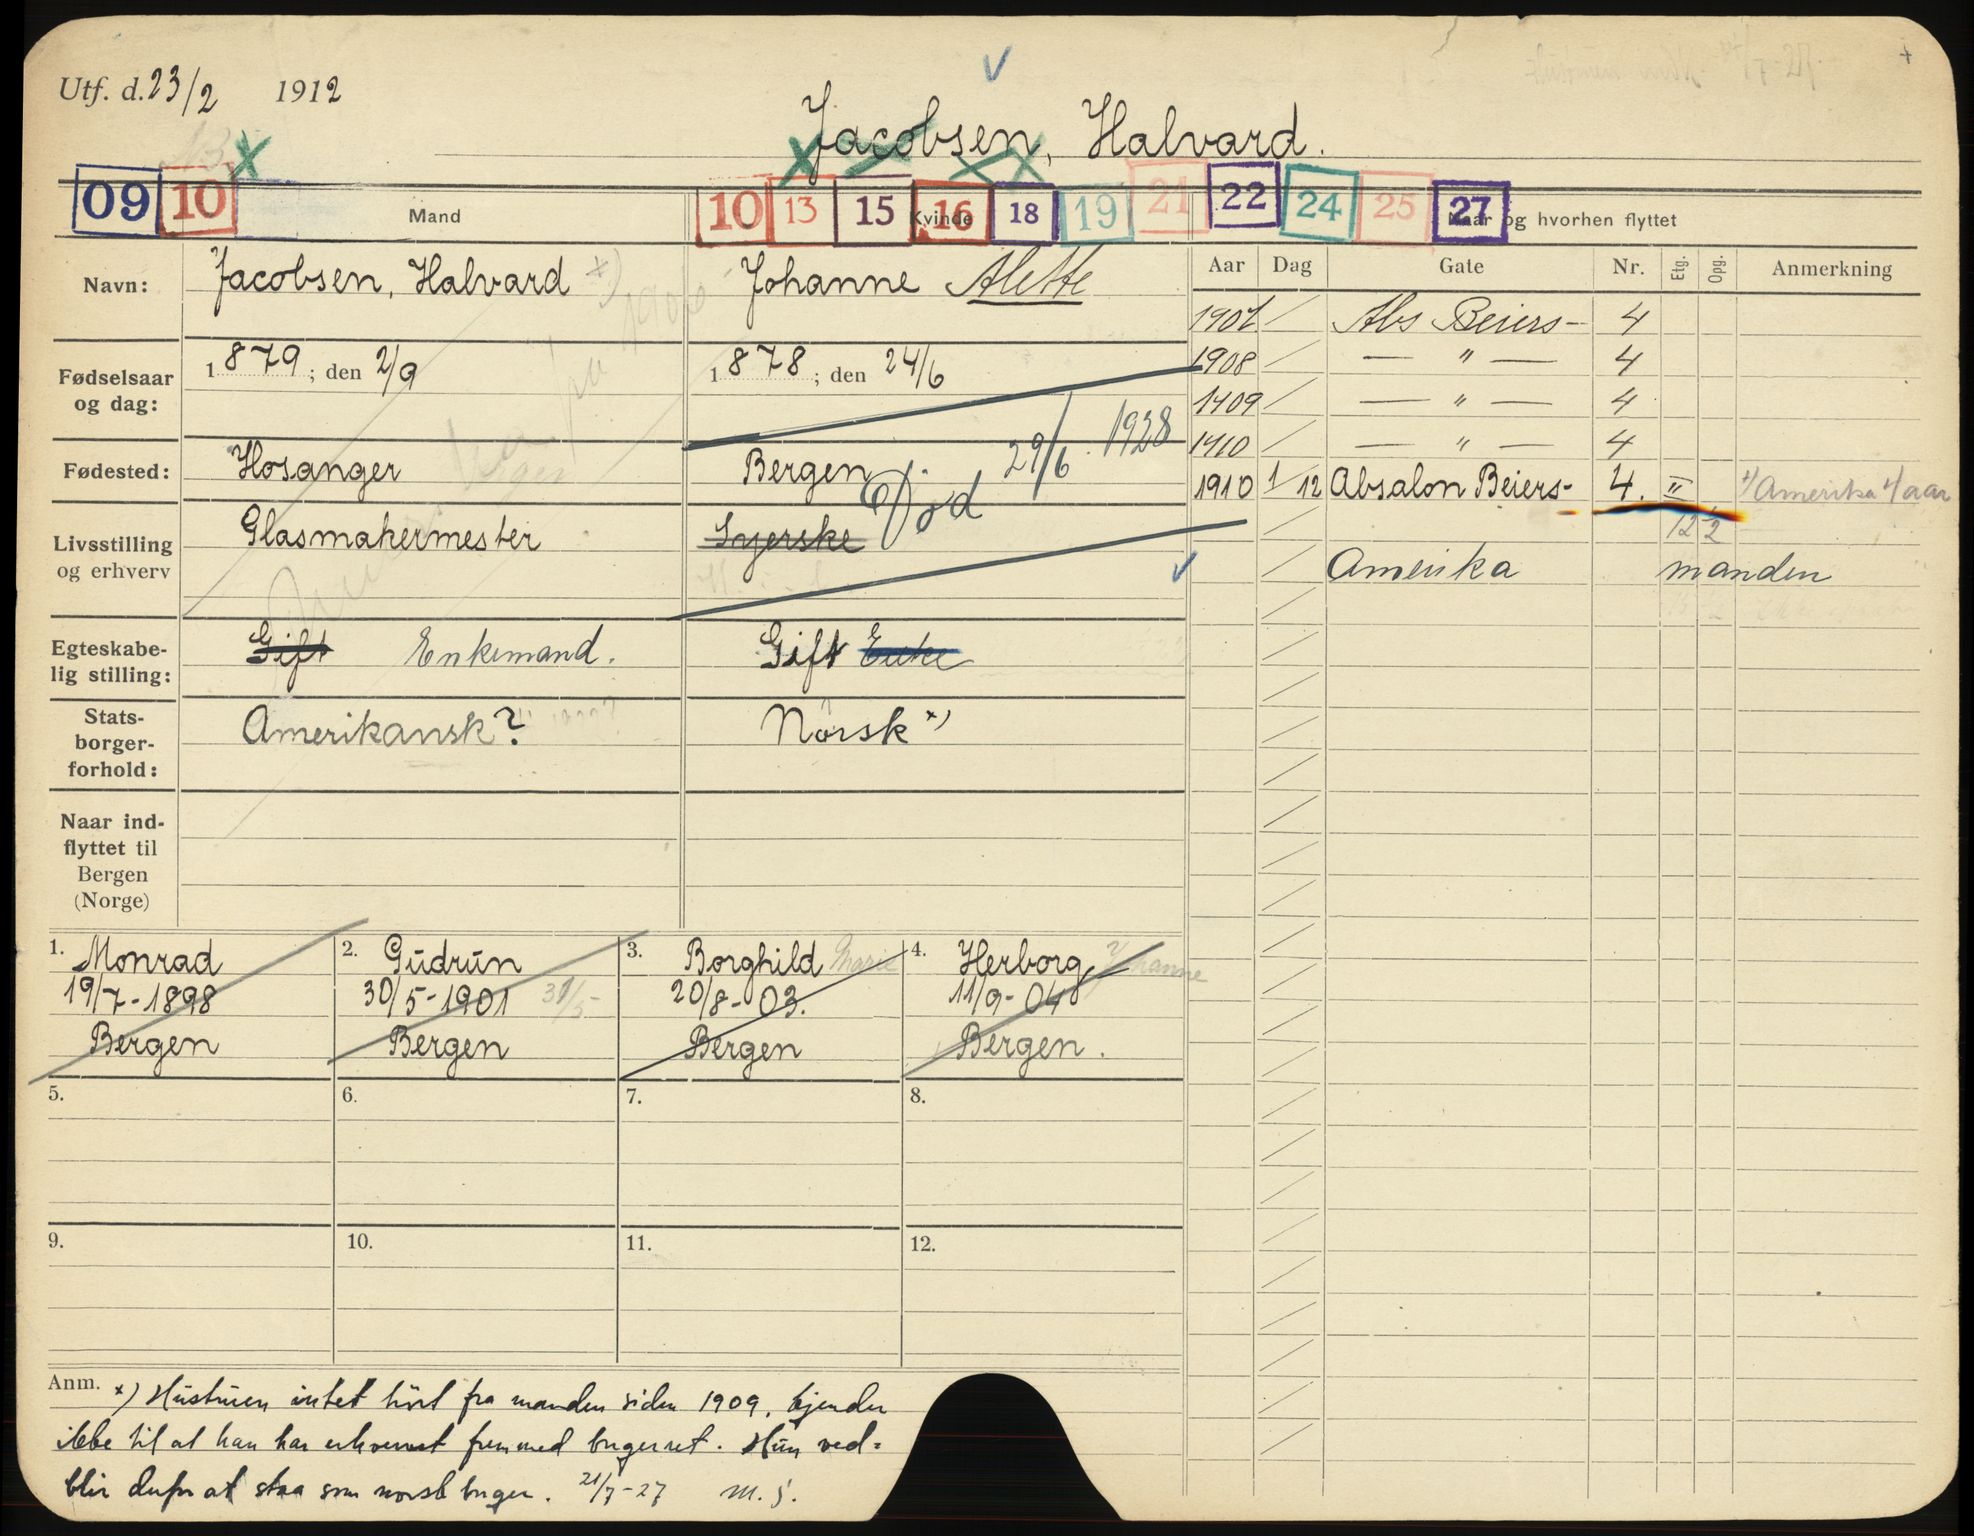 Utf. d. 23/2 1912
Jacobsen, Halvard.
09 10 10 13 15 16 18 19 21 22 24 25 27
Mand Kvinde Naar og hvorhen flyttet
Navn: Jacobsen, Halvard x) Johanne Alette
Aar Dag Gate Nr. Etg. Opg. Anmerkning
Fødselsaar og dag: 1879; den 2/9 1878; den 24/6
Fødested: Hosanger Bergen
Død 29/6 1928
Livsstilling og erhverv Glasmakermester Syerske
Egteskabe-
lig stilling: Gift Enkemand. Gift Enke
Stats-
borger-
forhold: Amerikansk? Norsk x)
Naar ind-
flyttet til
Bergen
(Norge)
1907 Abs Beiers- 4
1908 — " — 4
1909 — " — 4
1910 — " — 4
1910 1/12 Absalon Beiers- 4. II Amerika aar
12 1/2
Amerika manden
1. Monrad
19/7-1898
Bergen
2. Gudrun
30/5-1901 31/5-
Bergen
3. Borghild Marie
20/8-03.
Bergen
4. Herborg Johanne
11/9-04
Bergen.
5. 6. 7. 8.
9. 10. 11. 12.
Anm. x) Hustruen intet hört fra manden siden 1909, kjender
ikke til at han har erhvervet fremmed borgerret. Hun ved=
blir derfor at staa som norsk borger. 21/7-27 M. J.